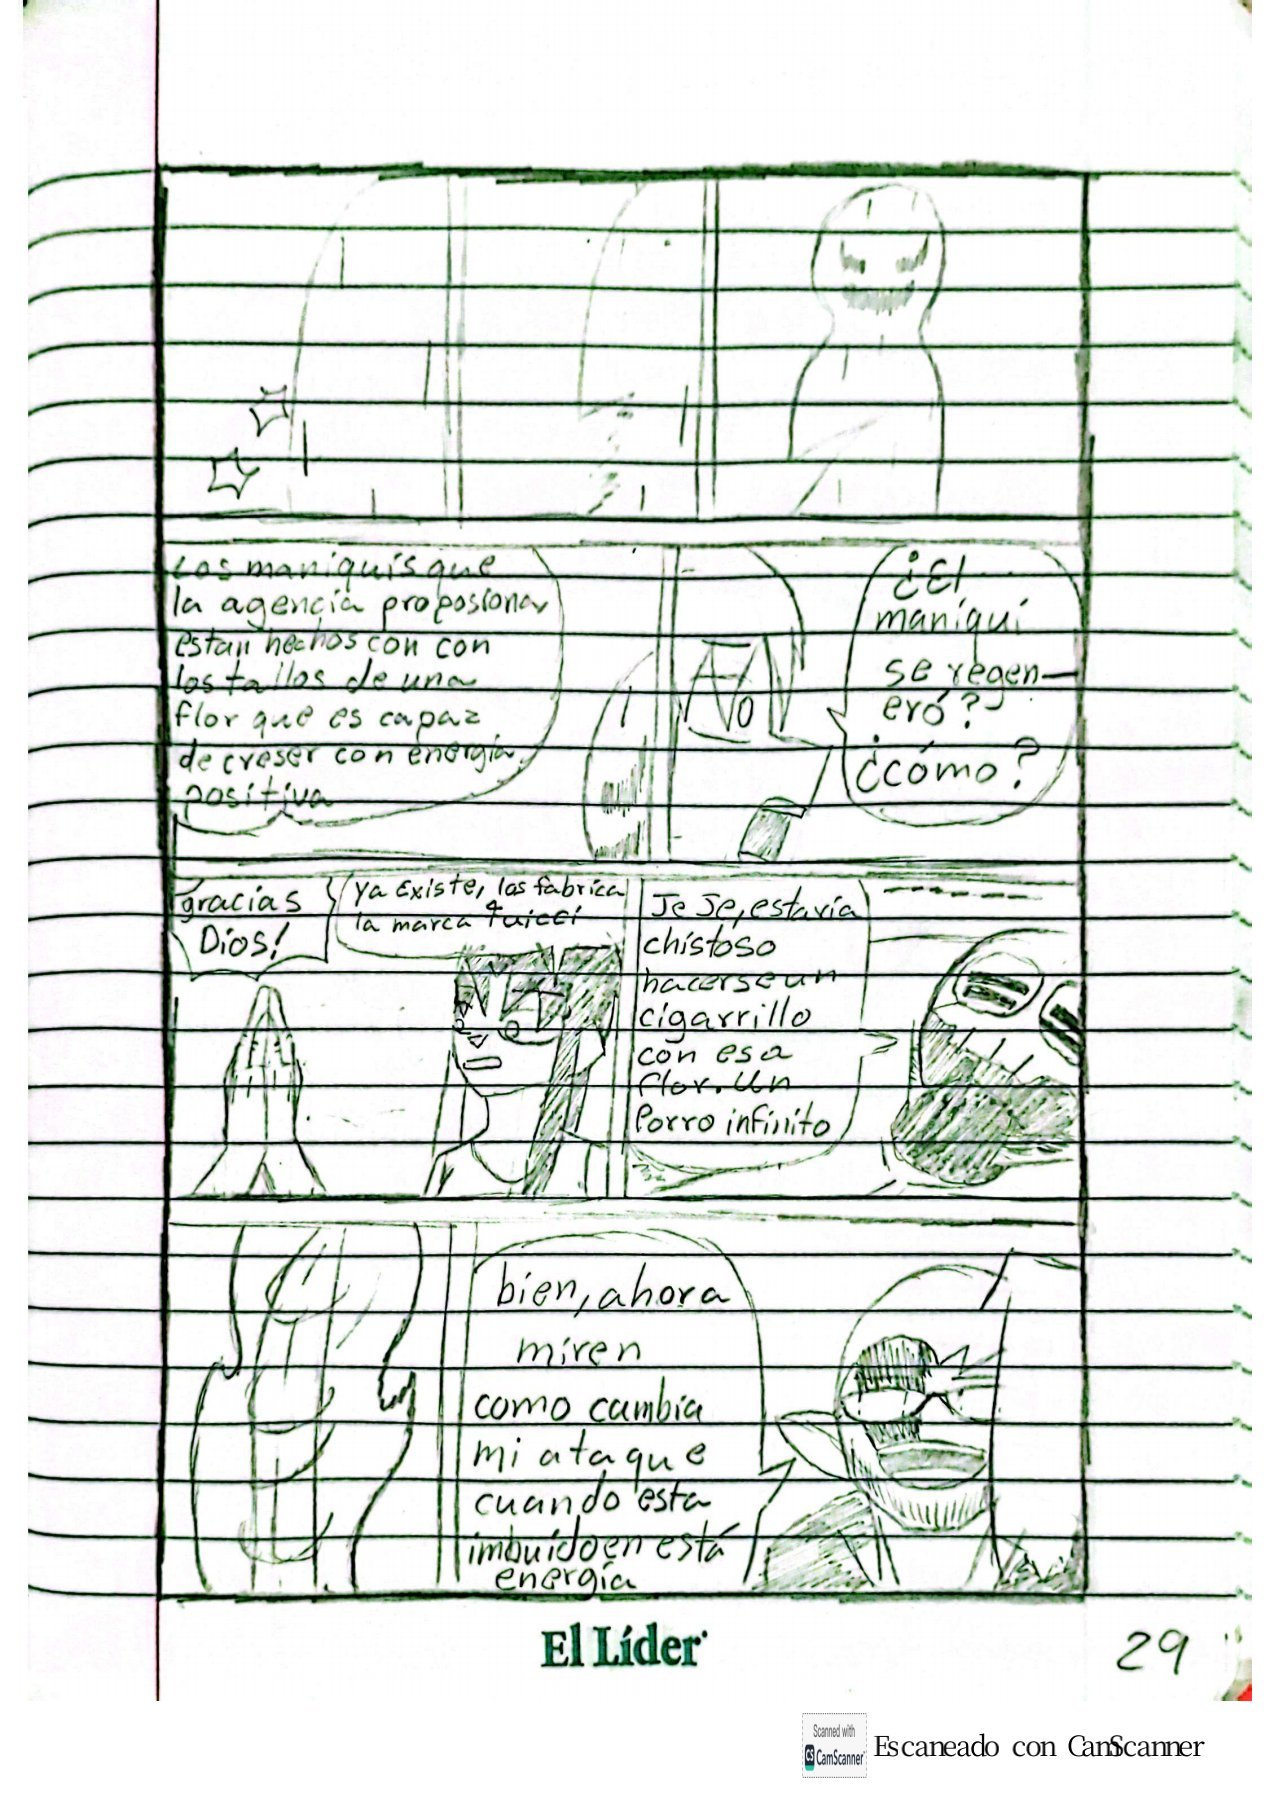 Los maniquís que
la agencia proposiona
estan hechos con con
los tallos de una
flor que es capaz
de creser con energía
positiva
¿El
maniquí
se regen-
eró?
¿cómo?
gracias
Dios!
Ya Existe, los fabrica
la marca
Je Je, estaría
chistoso
hacerse un
cigarrillo
con esa
flor. Un
Porro infinito
bien, ahora
miren
como cambia
mi ataque
cuando esta
imbuido en está
energía
El Líder
29
Scanned with
CS CamScanner
Escaneado con CamScanner